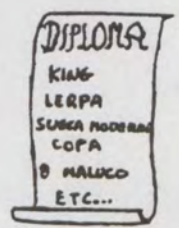 DIPLOMA
KING
LERPA
SUECA MODERNA
COPA
8 MALUCO
ETC...